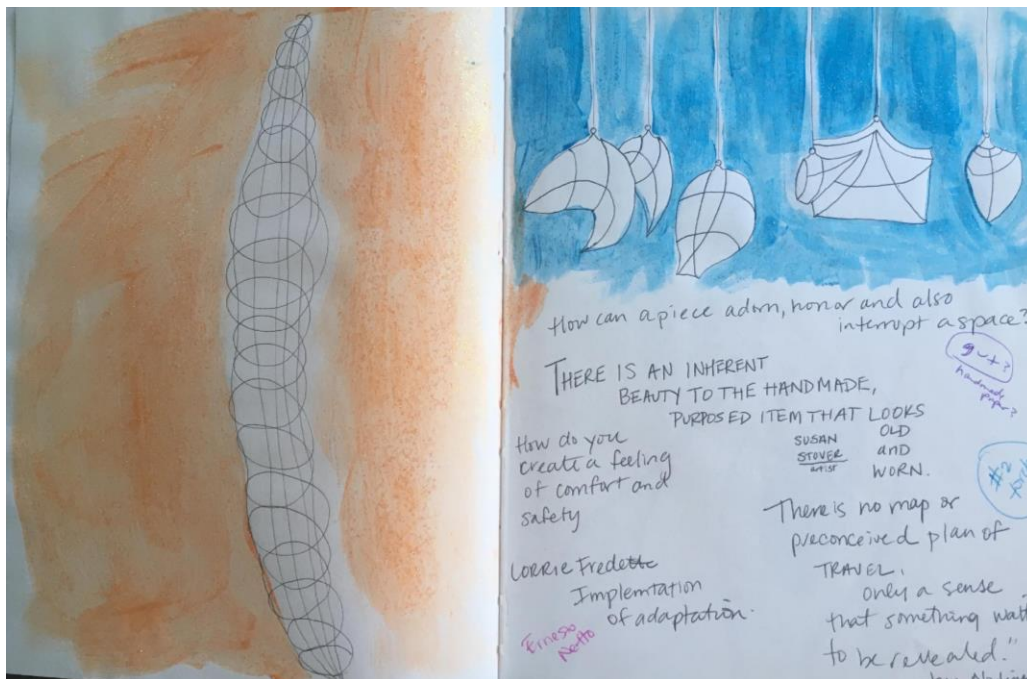 How can a piece adorn, honor and also
interrupt a space?
gut?
handmade
paper?
THERE IS AN INHERENT
BEAUTY TO THE HANDMADE,
PURPOSED ITEM THAT LOOKS
OLD
AND
WORN.
SUSAN
STOVER
artist
How do you
create a feeling
of comfort and
safety
#2
There is no map or
preconceived plan of
TRAVEL.
only a sense
that something
to be revealed."
LORRIE Fredette
Implemtation
of adaptation.
Ernesto
Netto